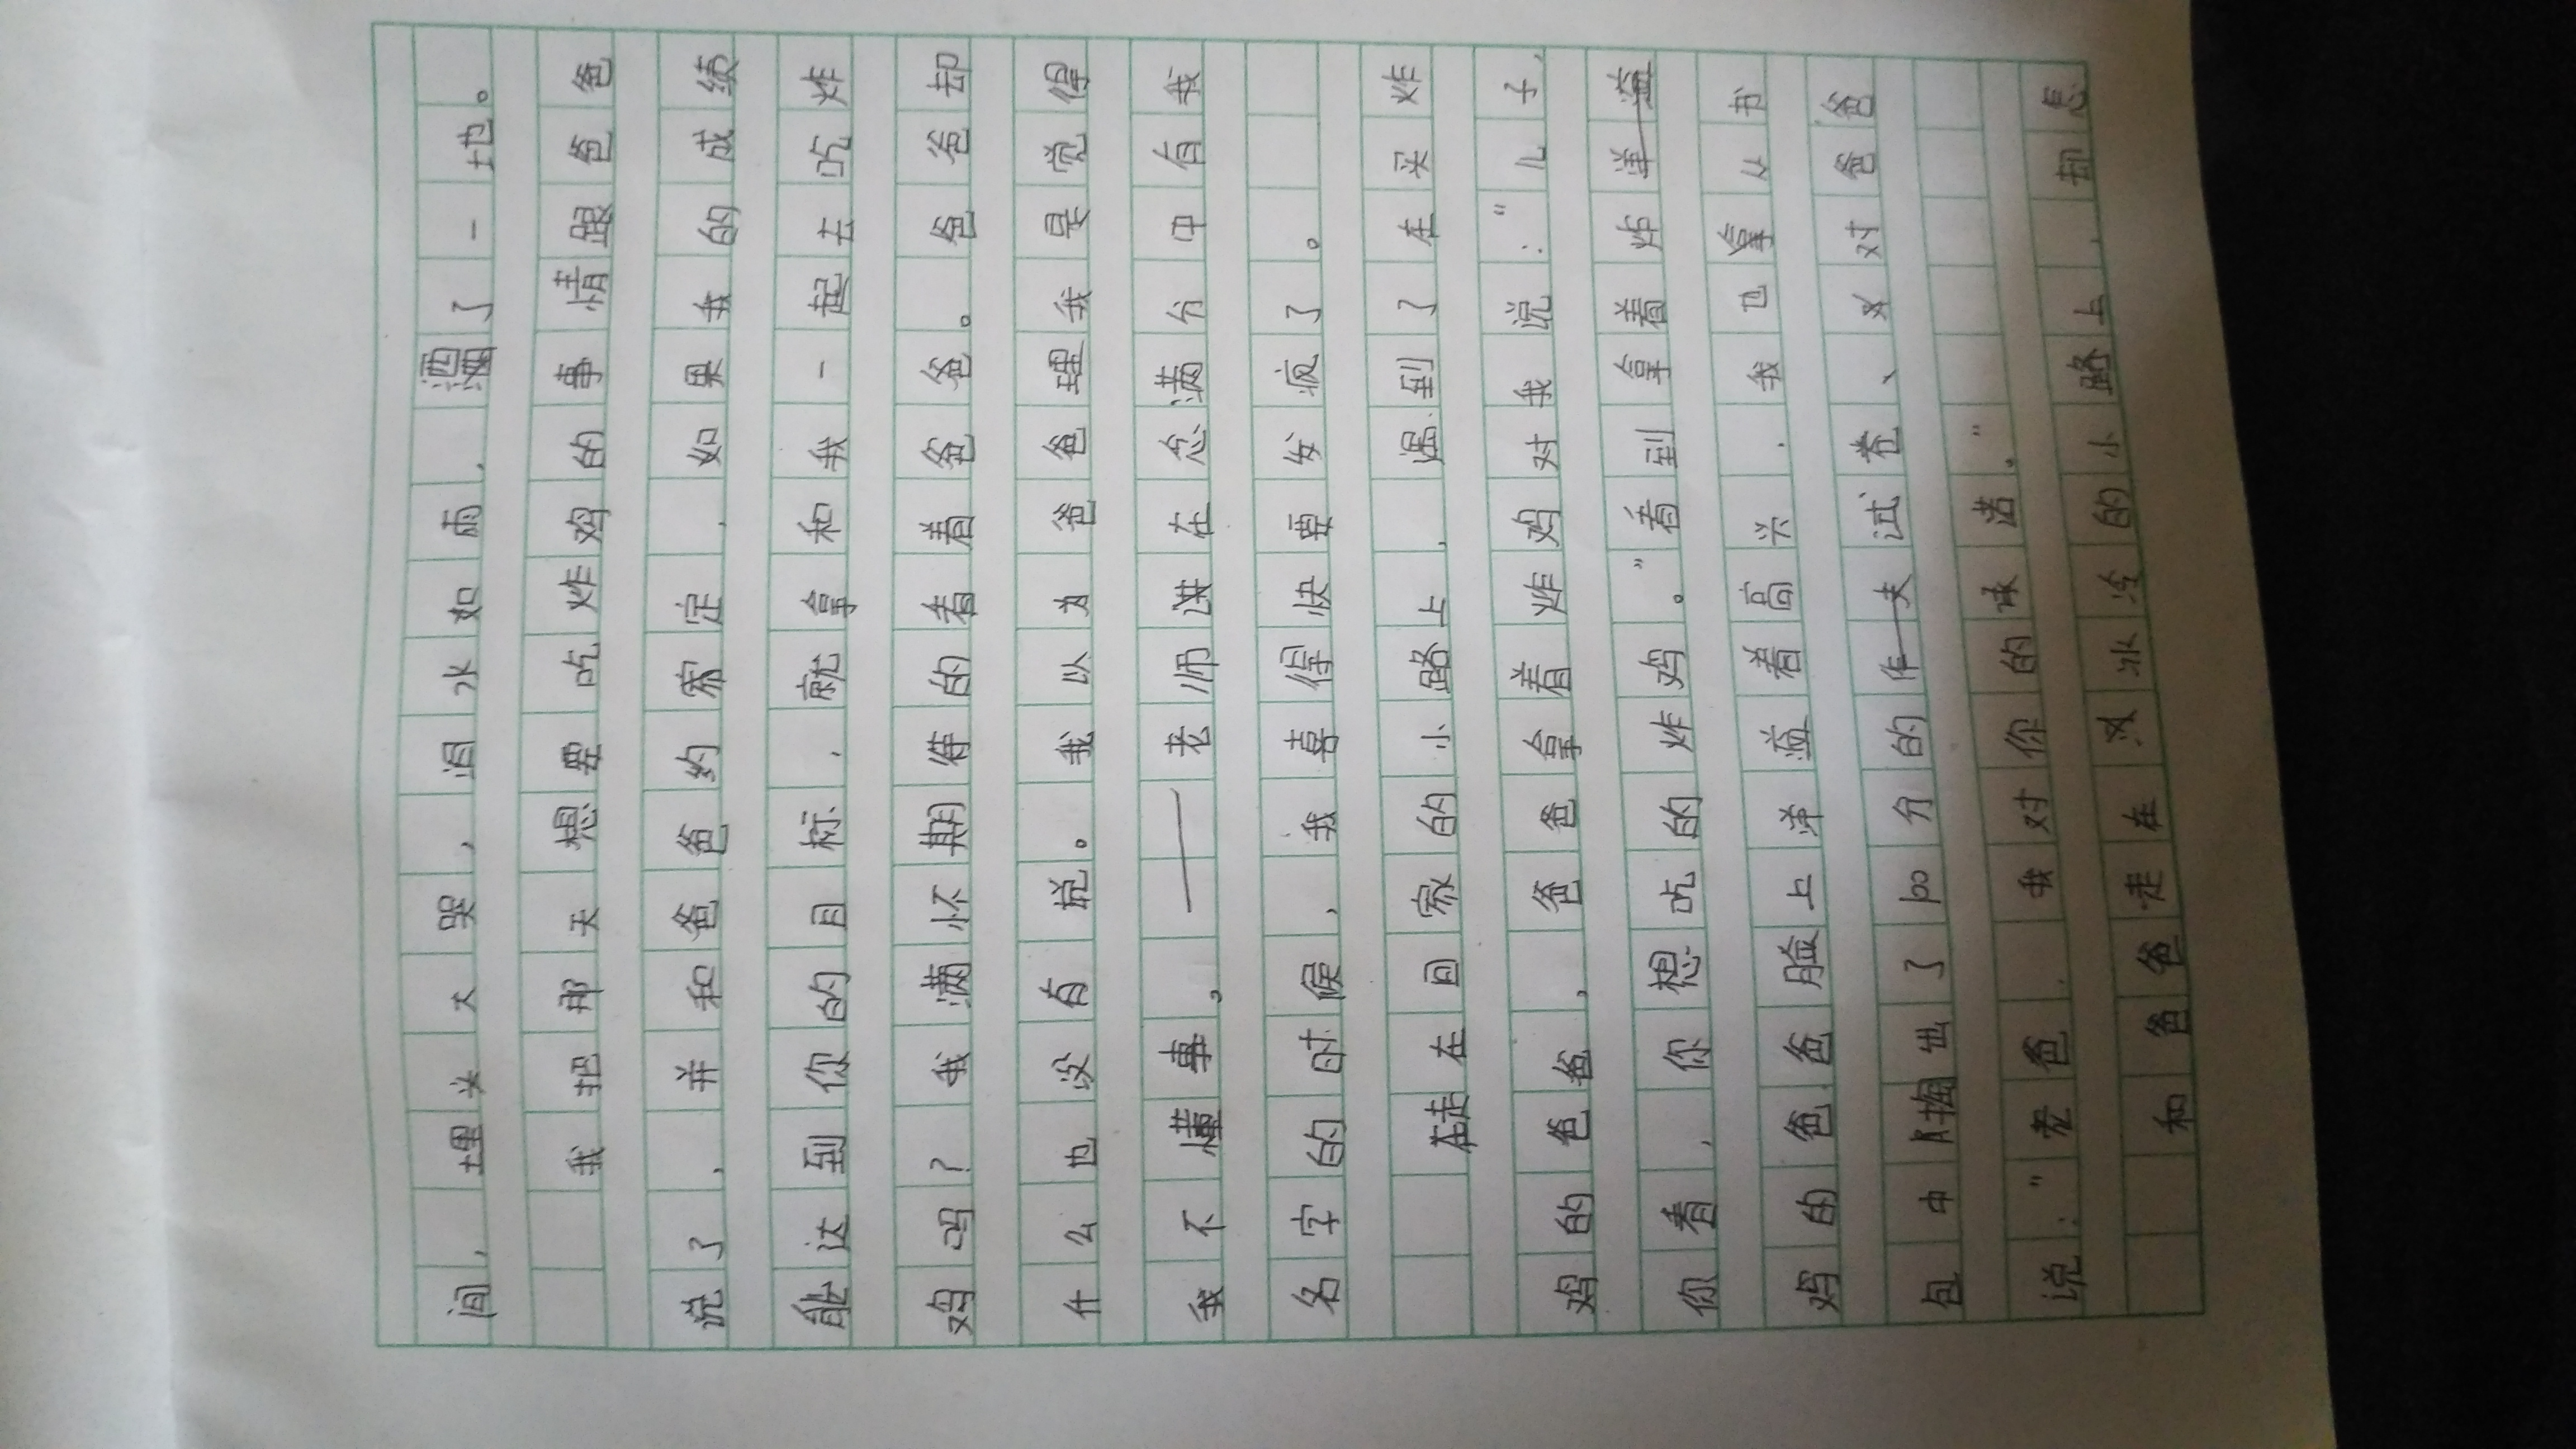 间,埋头大哭,泪水如雨,洒了一地。
我把那天想要吃炸鸡的事情跟爸爸
说了,并和爸爸约定,如果我的成绩
能达到你的目标,就和我一起去吃炸
鸡吗?我满怀期待的看着爸爸。爸爸却
什么也没有说。我以为爸爸是觉得
我不懂事。——老师在念满分中有我
名字的时候,我喜得快要发疯了。
走在回家的小路上,遇到了在买炸
鸡的爸爸,爸爸拿着炸鸡对我说:“儿子,
你看,你想吃的炸鸡。”看到拿着炸
鸡的爸爸脸上洋溢着高兴,我也从书
包中掏出了100分的试卷、对爸爸
说:“老爸,我对你的承诺。”
和爸爸走在冰冷的小路上,却